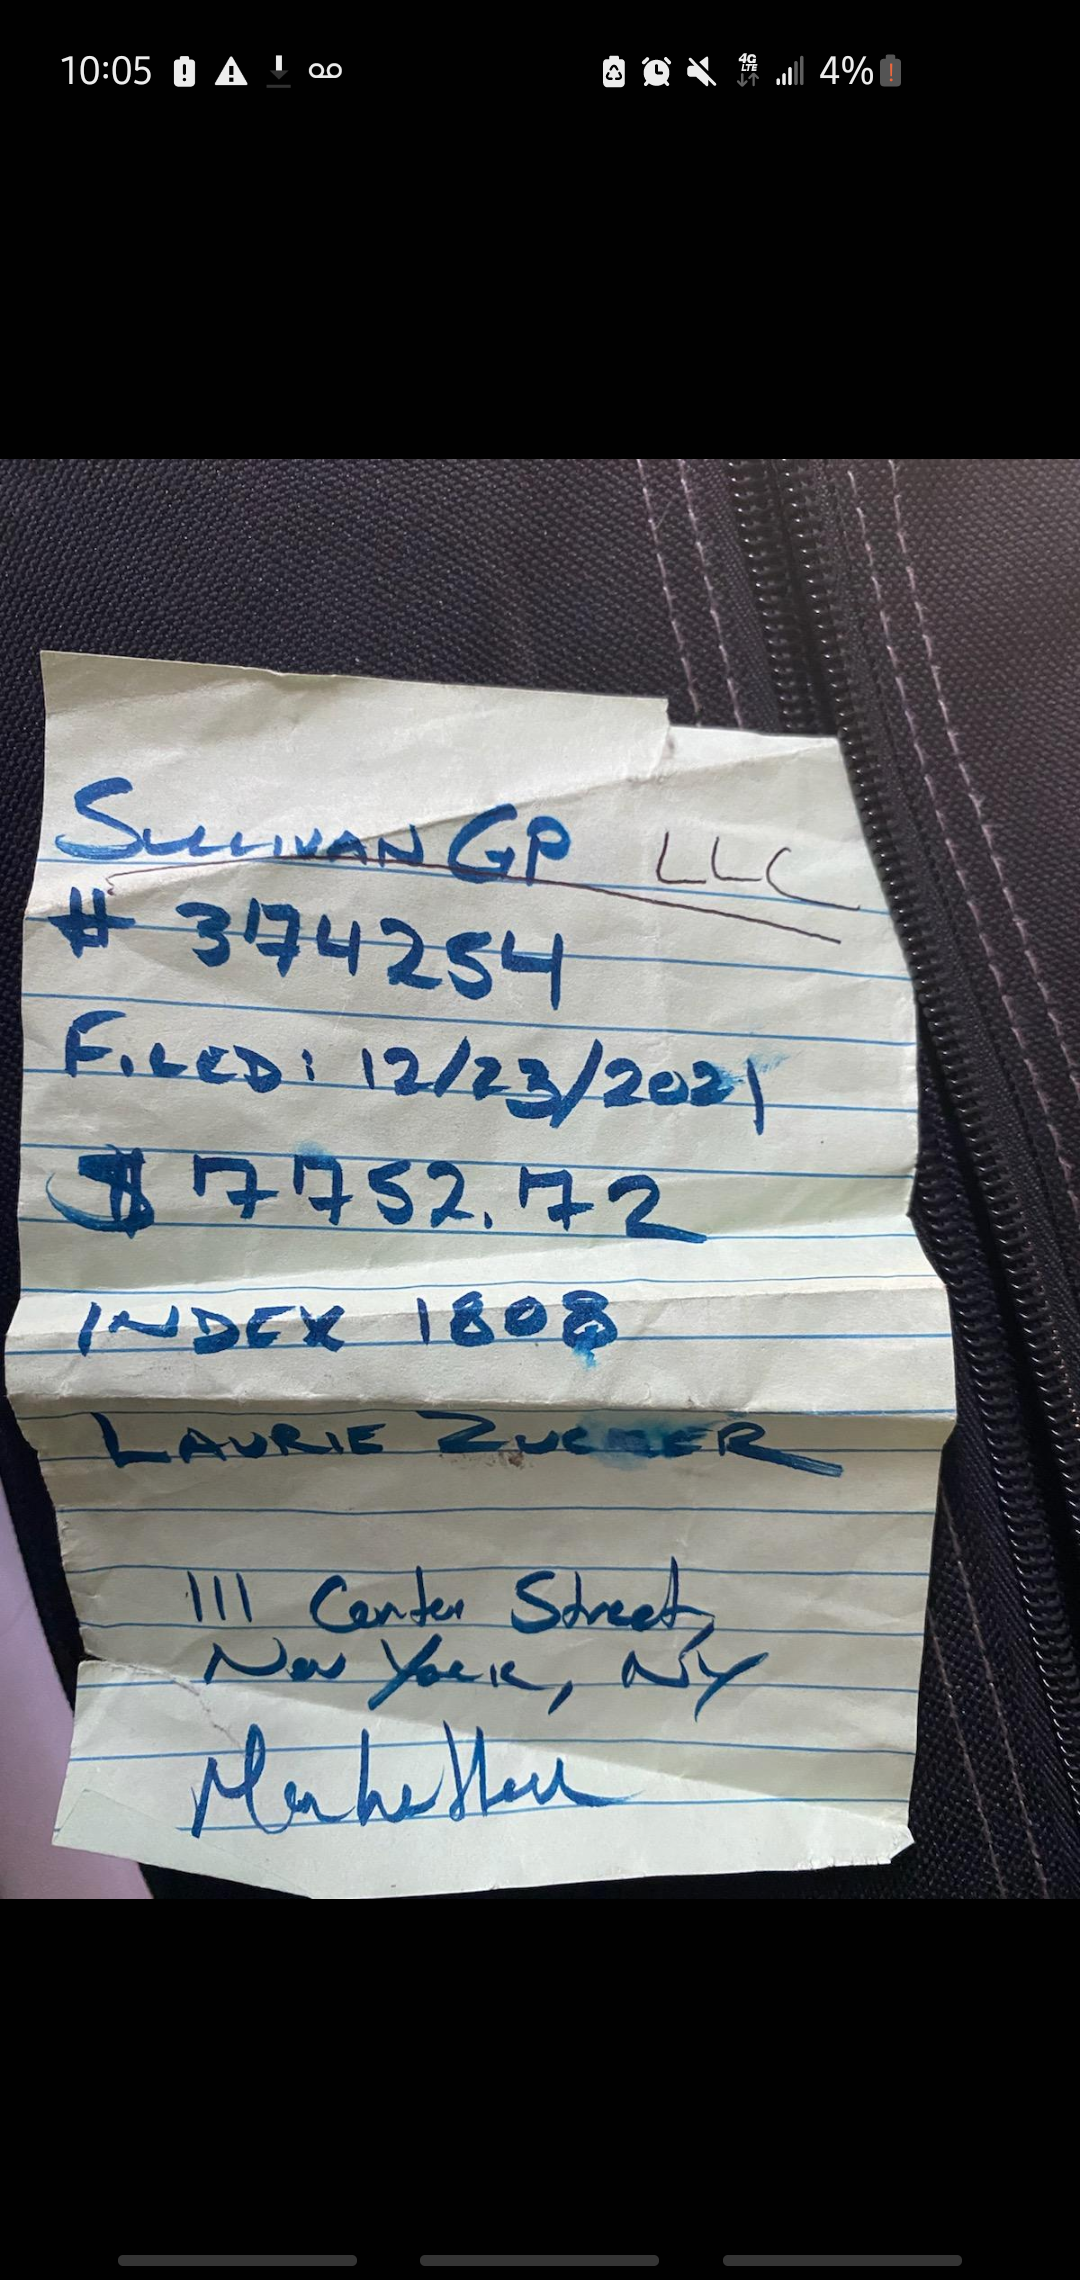 10:05 4G LTE 4%
SULLIVAN GP LLC
# 3174254
FILED: 12/23/2021
$ 7752.72
INDEX 1808
LAURIE ZUCKER
111 Center Street,
New York, NY
Manhattan